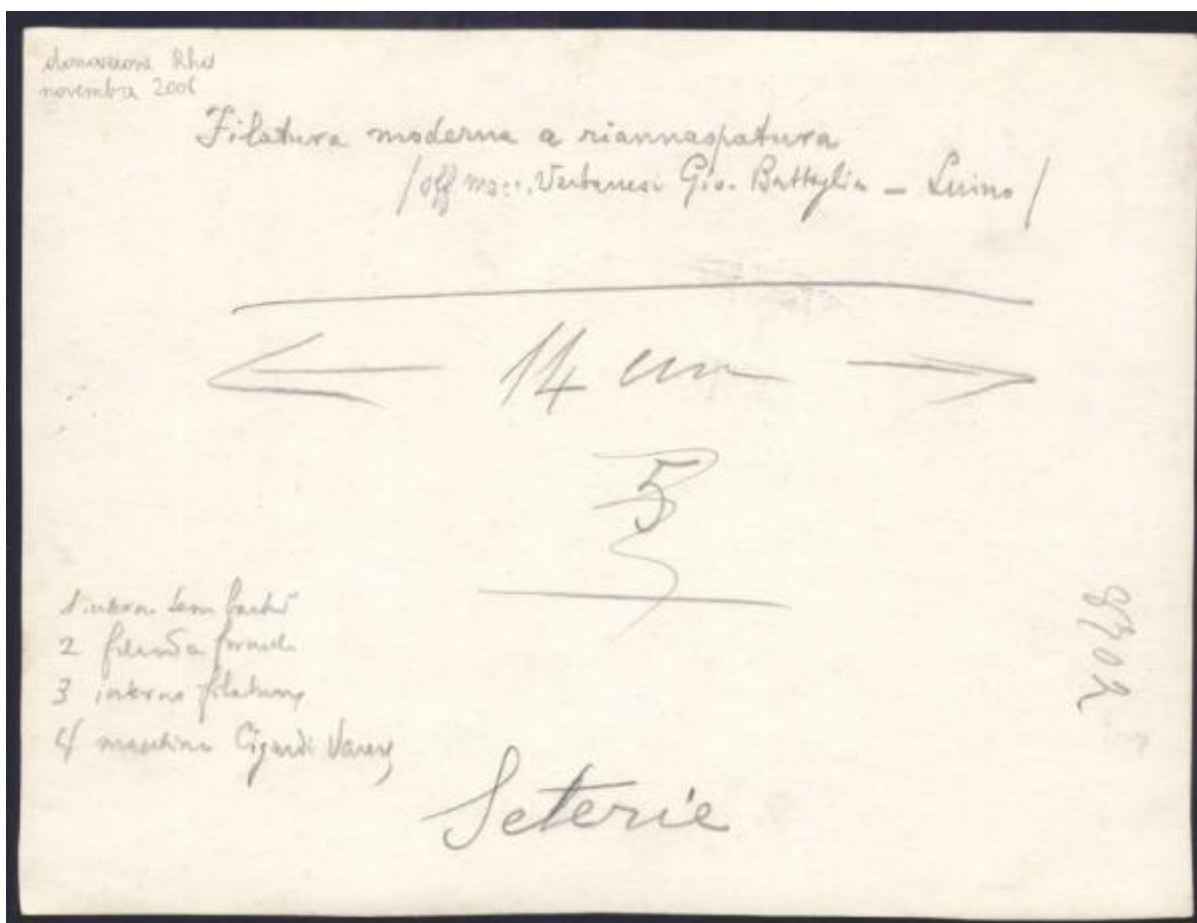 donazione Rho
novembre 2006
Filatura moderna a riannaspatura
/ off mecc. Verbanesi Gio. Battaglia – Luino /
14 cm
5
1 interno
2 filanda
3 interno filatura
4 macchina Varese
9302
Seterie